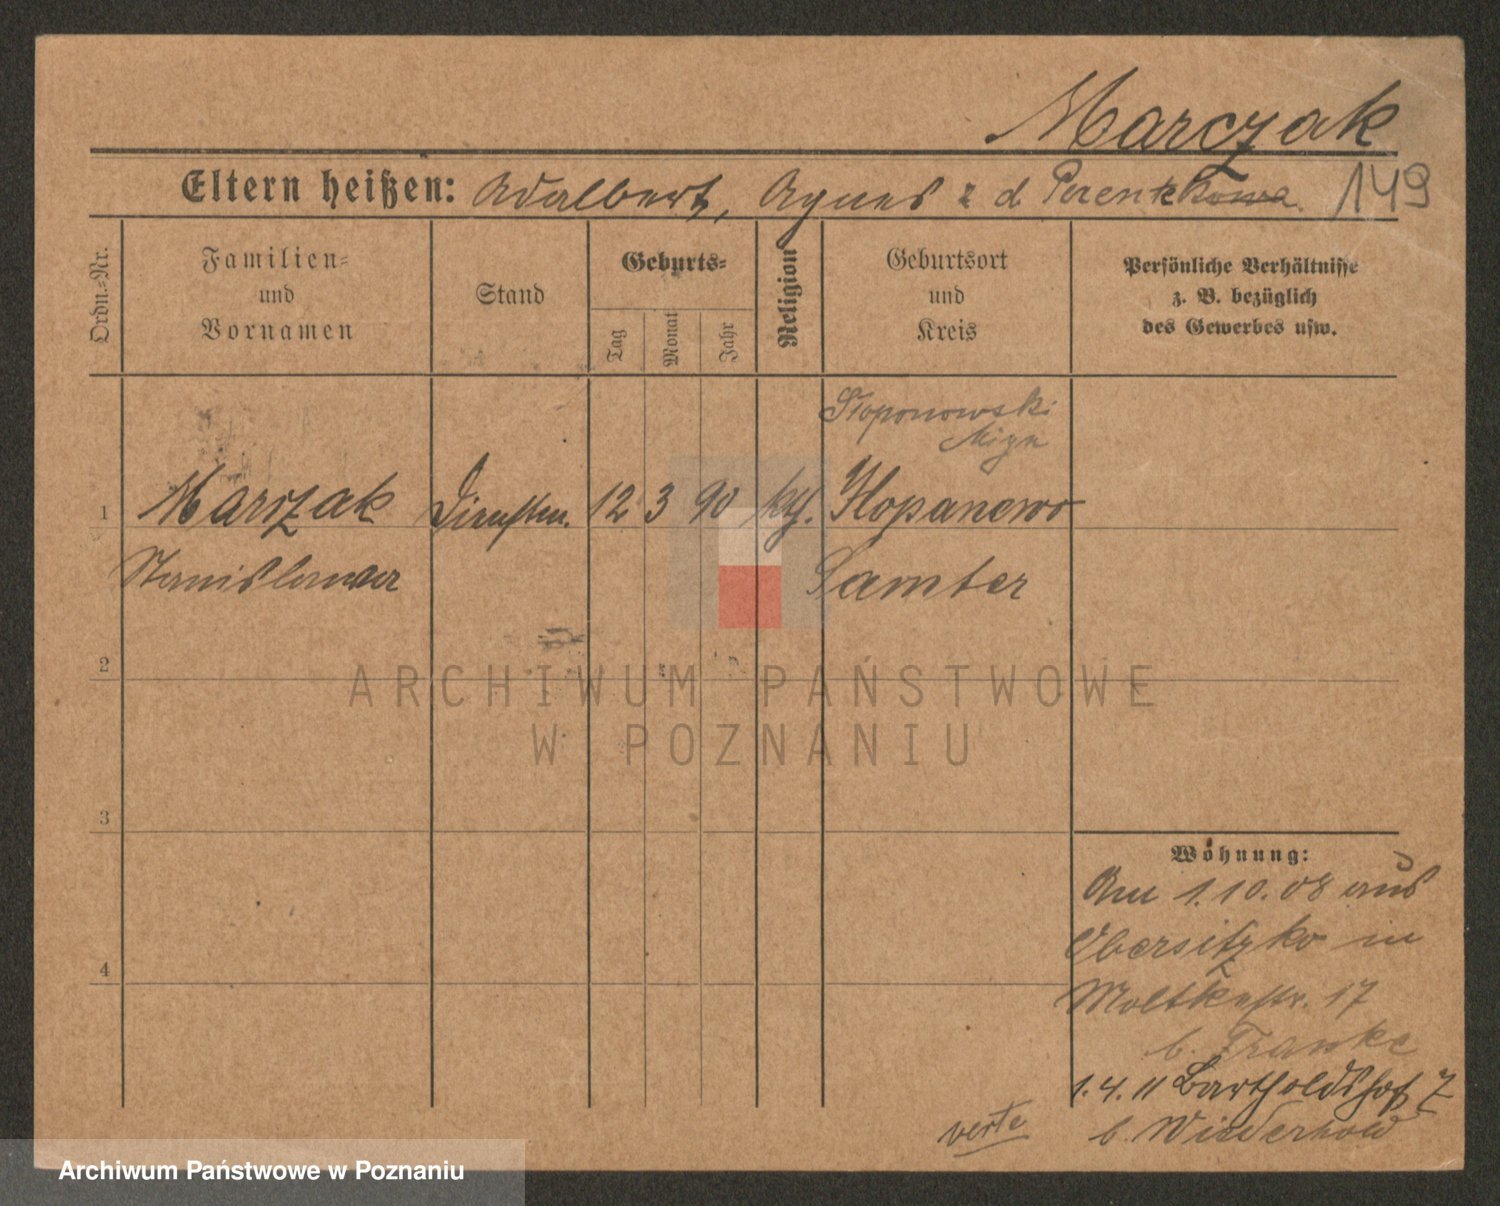 Marczak
Eltern heißen: Adalbert, Agnes z d 149
Ordn.-Nr.
Familien-
und
Vornamen
Stand
Geburts-
Tag
Monat
Jahr
Religion
Geburtsort
und
Kreis
Persönliche Verhältnisse
z. B. bezüglich
des Gewerbes usw.
1 Marczak 12 3 90 kth.
Stanislawa Samter
2
3
4
Wohnung:
Am 1.10.08 aus
Obersitzko in
Moltkestr. 17
b. Franke
1.4.11 Bartholdshof 7
b. Wiederhold
verte
ARCHIWUM PAŃSTWOWE
W POZNANIU
Archiwum Państwowe w Poznaniu